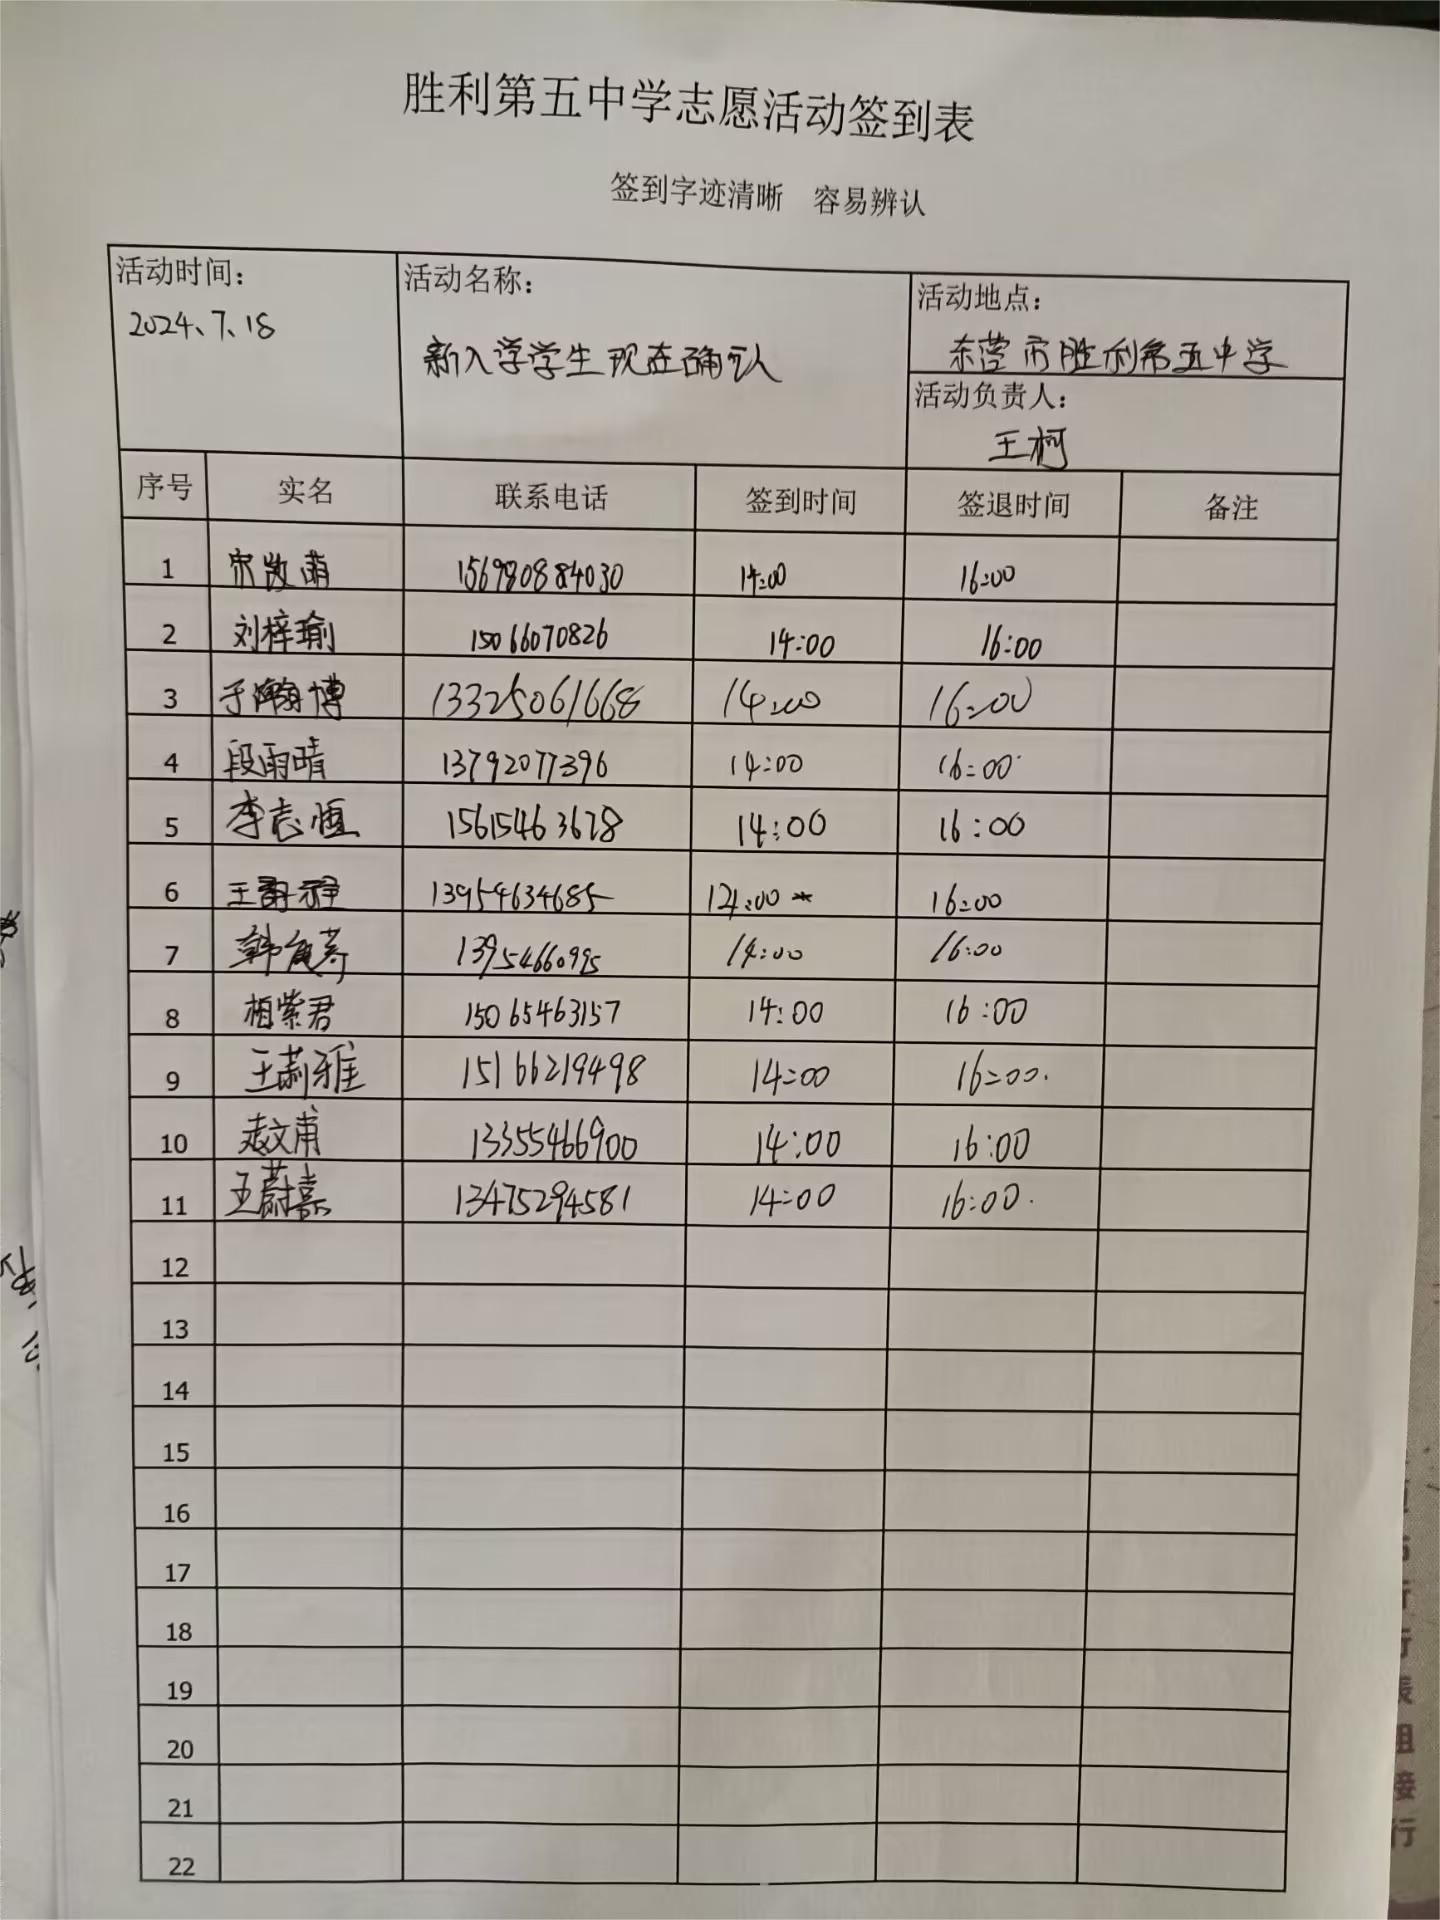 胜利第五中学志愿活动签到表
签到字迹清晰 容易辨认
活动时间: 活动名称: 活动地点:
2024、7、18 新入学学生现在确认 东营市胜利第五中学
活动负责人:
王柯
序号 实名 联系电话 签到时间 签退时间 备注
1 14:00 16:00
2 刘梓瑜 15066070826 14:00 16:00
3 于瀚博 13325061668 14:00 16:00
4 段雨晴 13792077396 14:00 16:00
5 李志恒 15615463678 14:00 16:00
6 13954634685 16:00
7 13954660995 14:00 16:00
8 相紫君 15065463157 14:00 16:00
9 王莉雅 15166219498 14:00 16:00
10 赵文甫 13355466900 14:00 16:00
11 王蔚嘉 13475294581 14:00 16:00
12
13
14
15
16
17
18
19
20
21
22